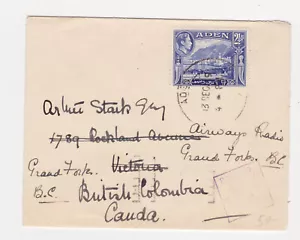 ADEN
2½
13 DEC
Arthur Stark Esq
1789 Rockland Avenue
Airways Radio
Grand Forks
Victoria
Grand Forks B.C.
B.C
British Columbia
Canada.